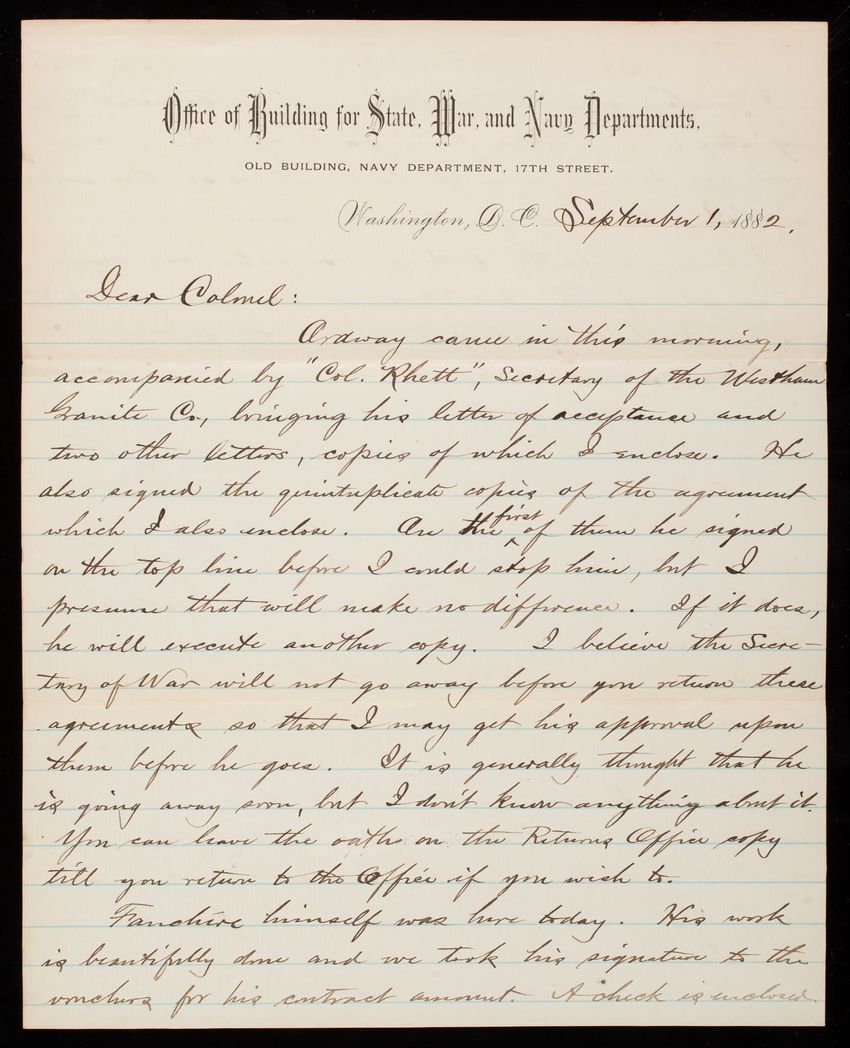 Office of Building for State, War, and Navy Departments,
OLD BUILDING, NAVY DEPARTMENT, 17TH STREET.
Washington, D. C. September 1, 1882.
Dear Colonel:
Ordway came in this morning,
accompanied by "Col. Rhett", Secretary of the Westham
Granite Co., bringing his letter of acceptance and
two other letters, copies of which I enclose. He
also signed the quintuplicate copies of the agreement
which I also enclose. On the first of them he signed
on the top line before I could stop him, but I
presume that will make no difference. If it does,
he will execute another copy. I believe the Secre-
tary of War will not go away before you return these
agreements so that I may get his approval upon
them before he goes. It is generally thought that he
is going away soon, but I don't know anything about it.
You can leave the oath on the Returns Office copy
till you return to the Office if you wish to.
Fauchère himself was here today. His work
is beautifully done and we took his signature to the
vouchers for his contract amount. A check is enclosed